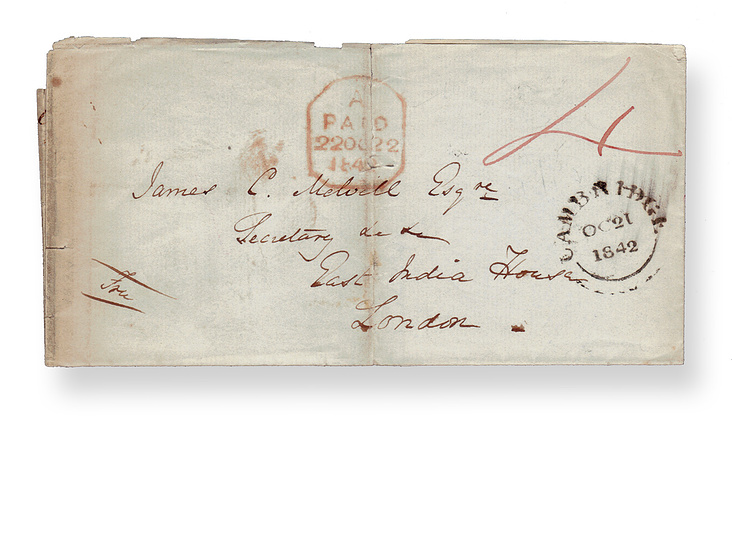 A
PAID
22OC22
1842
4
James C. Melvill Esqre
Secretary &c &c
East India House
London
CAMBRIDGE
OC21
1842